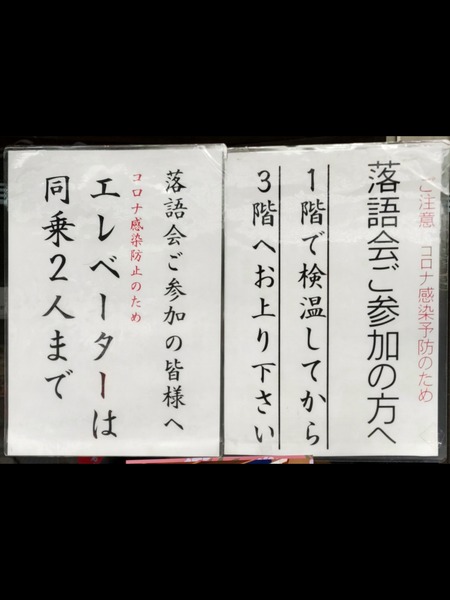 ご注意 コロナ感染予防のため
落語会ご参加の方へ
1階で検温してから
3階へお上り下さい
落語会ご参加の皆様へ
コロナ感染防止のため
エレベーターは
同乗2人まで